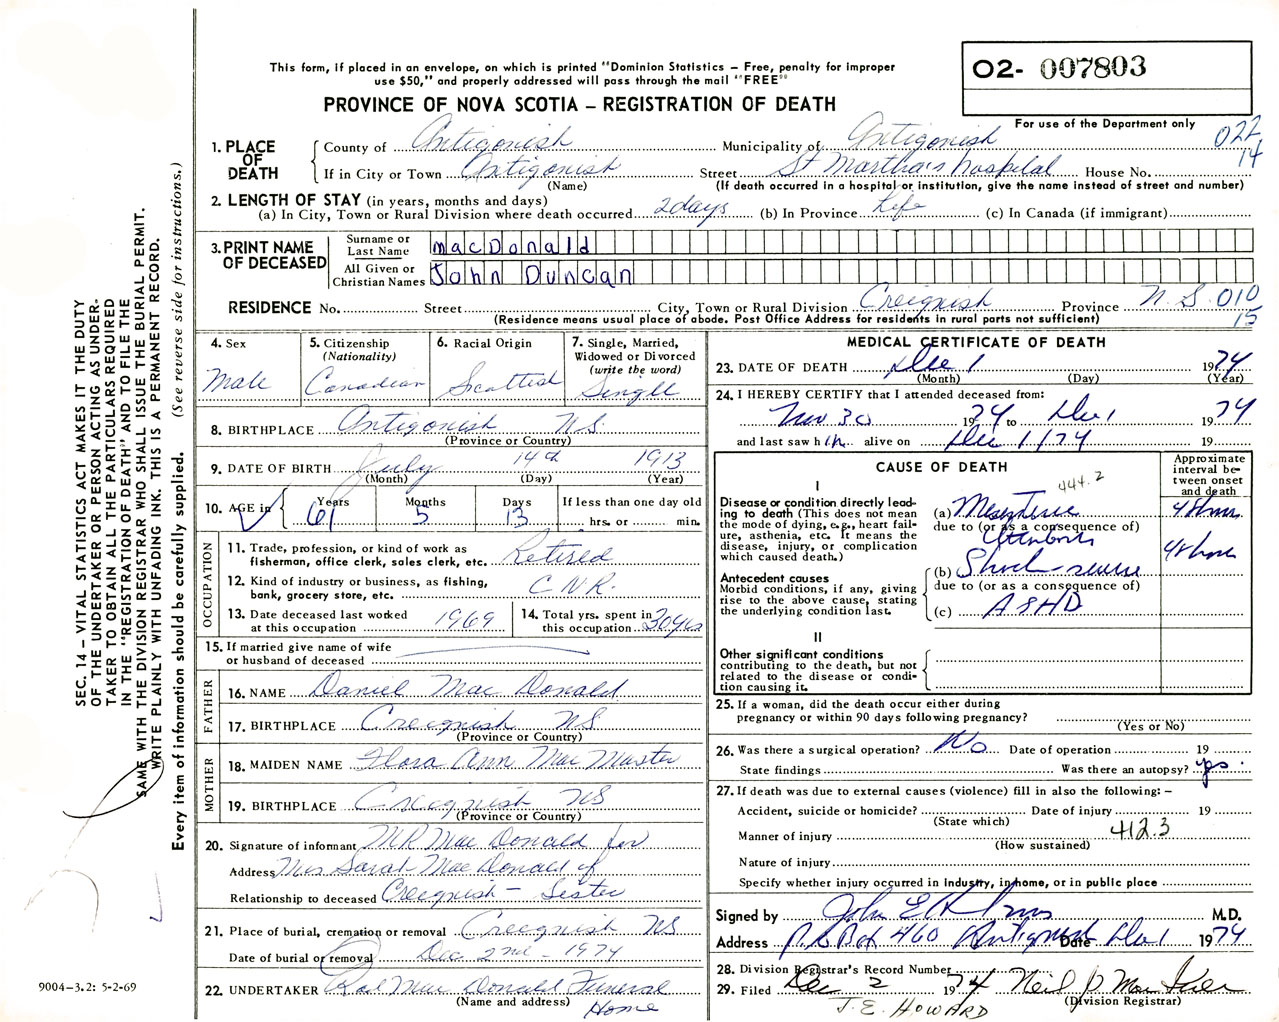 This form, if placed in an envelope, on which is printed "Dominion Statistics – Free, penalty for improper
use $50," and properly addressed will pass through the mail "FREE"
PROVINCE OF NOVA SCOTIA – REGISTRATION OF DEATH
O2- 007803
For use of the Department only
022
14
1. PLACE OF DEATH
County of Antigonish Municipality of Antigonish
If in City or Town Antigonish Street St Martha's hospital House No.
(Name) (If death occurred in a hospital or institution, give the name instead of street and number)
2. LENGTH OF STAY (in years, months and days)
(a) In City, Town or Rural Division where death occurred 2 days (b) In Province Life (c) In Canada (if immigrant)
3. PRINT NAME OF DECEASED
Surname or Last Name macDonald
All Given or Christian Names John Duncan
RESIDENCE No. Street City, Town or Rural Division Creignish Province N.S. 010
15
(Residence means usual place of abode. Post Office Address for residents in rural parts not sufficient)
4. Sex
Male
5. Citizenship
(Nationality)
Canadian
6. Racial Origin
Scottish
7. Single, Married,
Widowed or Divorced
(write the word)
Single
8. BIRTHPLACE Antigonish N.S.
(Province or Country)
9. DATE OF BIRTH July 14th 1913
(Month) (Day) (Year)
10. AGE in
Years Months Days If less than one day old
61 5 13 hrs. or min.
OCCUPATION
11. Trade, profession, or kind of work as
fisherman, office clerk, sales clerk, etc. Retired
12. Kind of industry or business, as fishing,
bank, grocery store, etc. C.N.R.
13. Date deceased last worked
at this occupation 1969
14. Total yrs. spent in
this occupation 30yrs
15. If married give name of wife
or husband of deceased
FATHER
16. NAME Daniel Mac Donald
17. BIRTHPLACE Creignish NS
(Province or Country)
MOTHER
18. MAIDEN NAME Flora Ann Mac Master
19. BIRTHPLACE Creignish NS
(Province or Country)
20. Signature of informant MR Mac Donald for
Address Mrs Sarah Mac Donald of
Relationship to deceased Creignish – Sister
21. Place of burial, cremation or removal Creignish NS
Date of burial or removal Dec 2nd – 1974
22. UNDERTAKER Mac Donald Funeral
(Name and address) Home
MEDICAL CERTIFICATE OF DEATH
23. DATE OF DEATH Dec 1 1974
(Month) (Day) (Year)
24. I HEREBY CERTIFY that I attended deceased from:
Nov 30 1974 to Dec 1 1974
and last saw him alive on Dec 1/74 19
CAUSE OF DEATH
Approximate
interval be-
tween onset
and death
444.2
I
Disease or condition directly lead-
ing to death (This does not mean
the mode of dying, e.g., heart fail-
ure, asthenia, etc. It means the
disease, injury, or complication
which caused death.)
(a) Mesenteric 48 hrs
due to (or as a consequence of)
48 hours
Antecedent causes
Morbid conditions, if any, giving
rise to the above cause, stating
the underlying condition last.
(b) Shock – severe
due to (or as a consequence of)
(c) ASHD
II
Other significant conditions
contributing to the death, but not
related to the disease or condi-
tion causing it.
25. If a woman, did the death occur either during
pregnancy or within 90 days following pregnancy?
(Yes or No)
26. Was there a surgical operation? No Date of operation 19
State findings Was there an autopsy? yes
27. If death was due to external causes (violence) fill in also the following: –
Accident, suicide or homicide? Date of injury 19
(State which)
Manner of injury 412.3
(How sustained)
Nature of injury
Specify whether injury occurred in industry, in home, or in public place
Signed by John E M.D.
Address P.O. Box 460 Antigonish Date Dec 1 1974
28. Division Registrar's Record Number
29. Filed Dec 2 1974 Neil
(Division Registrar)
J.E. HOWARD
SEC. 14 – VITAL STATISTICS ACT MAKES IT THE DUTY
OF THE UNDERTAKER OR PERSON ACTING AS UNDER-
TAKER TO OBTAIN ALL THE PARTICULARS REQUIRED
IN THE "REGISTRATION OF DEATH" AND TO FILE THE
SAME WITH THE DIVISION REGISTRAR WHO SHALL ISSUE THE BURIAL PERMIT.
WRITE PLAINLY WITH UNFADING INK. THIS IS A PERMANENT RECORD.
Every item of information should be carefully supplied. (See reverse side for instructions.)
9004-3.2: 5-2-69